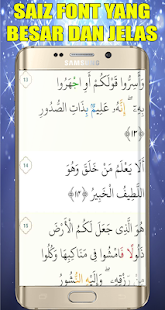 SAIZ FONT YANG
BESAR DAN JELAS
SAMSUNG
13
وَأَسِرُّوا۟ قَوْلَكُمْ أَوِ ٱجْهَرُوا۟
بِهِۦٓ ۖ إِنَّهُۥ عَلِيمٌۢ بِذَاتِ ٱلصُّدُورِ
﴿١٣﴾
14
أَلَا يَعْلَمُ مَنْ خَلَقَ وَهُوَ
ٱللَّطِيفُ ٱلْخَبِيرُ ﴿١٤﴾
15
هُوَ ٱلَّذِى جَعَلَ لَكُمُ ٱلْأَرْضَ
ذَلُولًا فَٱمْشُوا۟ فِى مَنَاكِبِهَا وَكُلُوا۟
مِن رِّزْقِهِۦ ۖ وَإِلَيْهِ ٱلنُّشُورُ